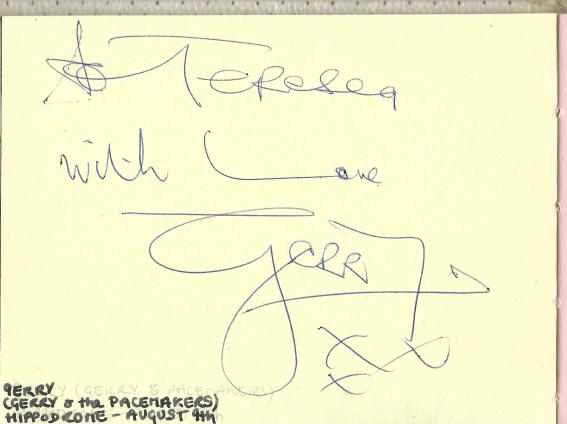 To Teresa
with Love
Gerry
xxx
GERRY
(GERRY & the PACEMAKERS)
HIPPODROME - AUGUST 9th